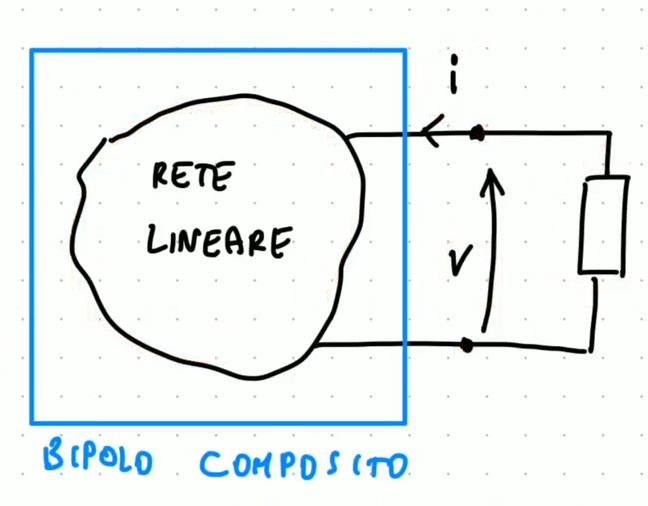 i
RETE
LINEARE
V
BIPOLO COMPOSITO